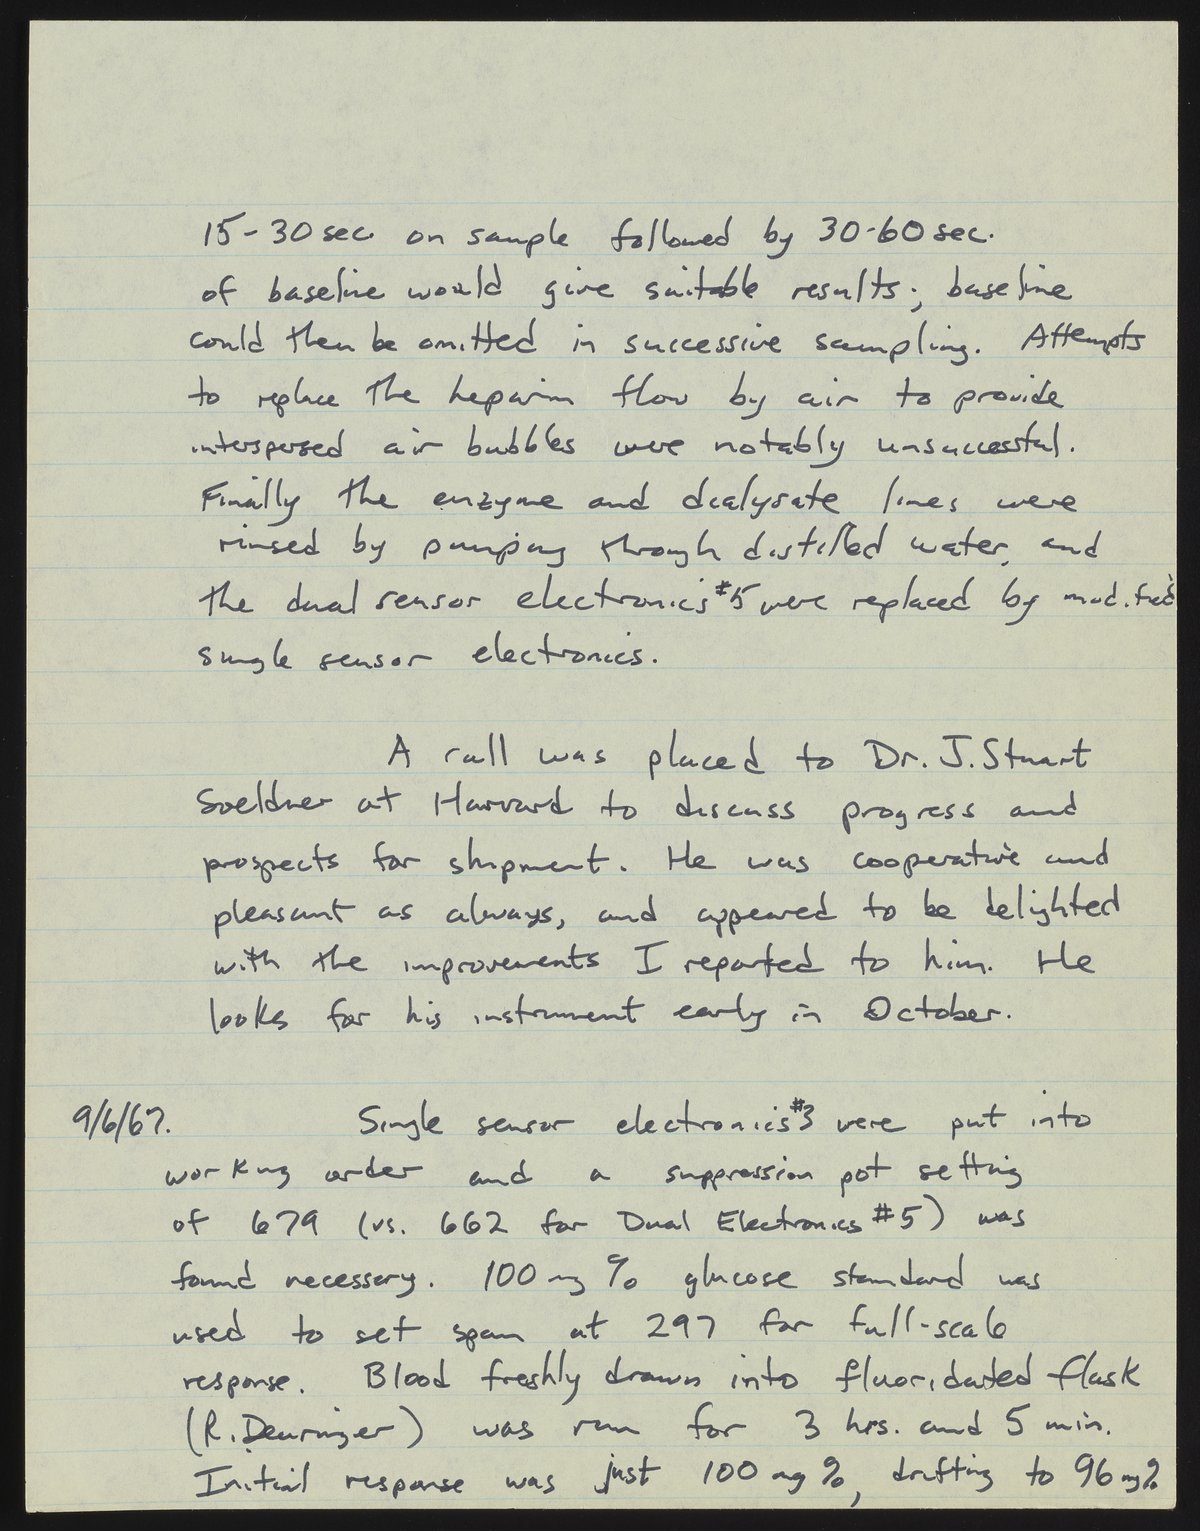 15-30 sec. on sample followed by 30-60 sec.
of baseline would give suitable results; baseline
could then be omitted in successive sampling. Attempts
to replace the heparin flow by air to provide
interspersed air bubbles were notably unsuccessful.
Finally the enzyme and dialysate lines were
rinsed by pumping through distilled water, and
the dual sensor electronics #5 were replaced by modified
single sensor electronics.
A call was placed to Dr. J. Stuart
Soeldner at Harvard to discuss progress and
prospects for shipment. He was cooperative and
pleasant as always, and appeared to be delighted
with the improvements I reported to him. He
looks for his instrument early in October.
9/6/67. Single sensor electronics #3 were put into
working order and a suppression pot setting
of 679 (vs. 662 for Dual Electronics #5) was
found necessary. 100 mg % glucose standard was
used to set span at 297 for full-scale
response. Blood freshly drawn into fluoridated flask
(R. Deuringer) was run for 3 hrs. and 5 min.
Initial response was just 100 mg %, drifting to 96 mg %